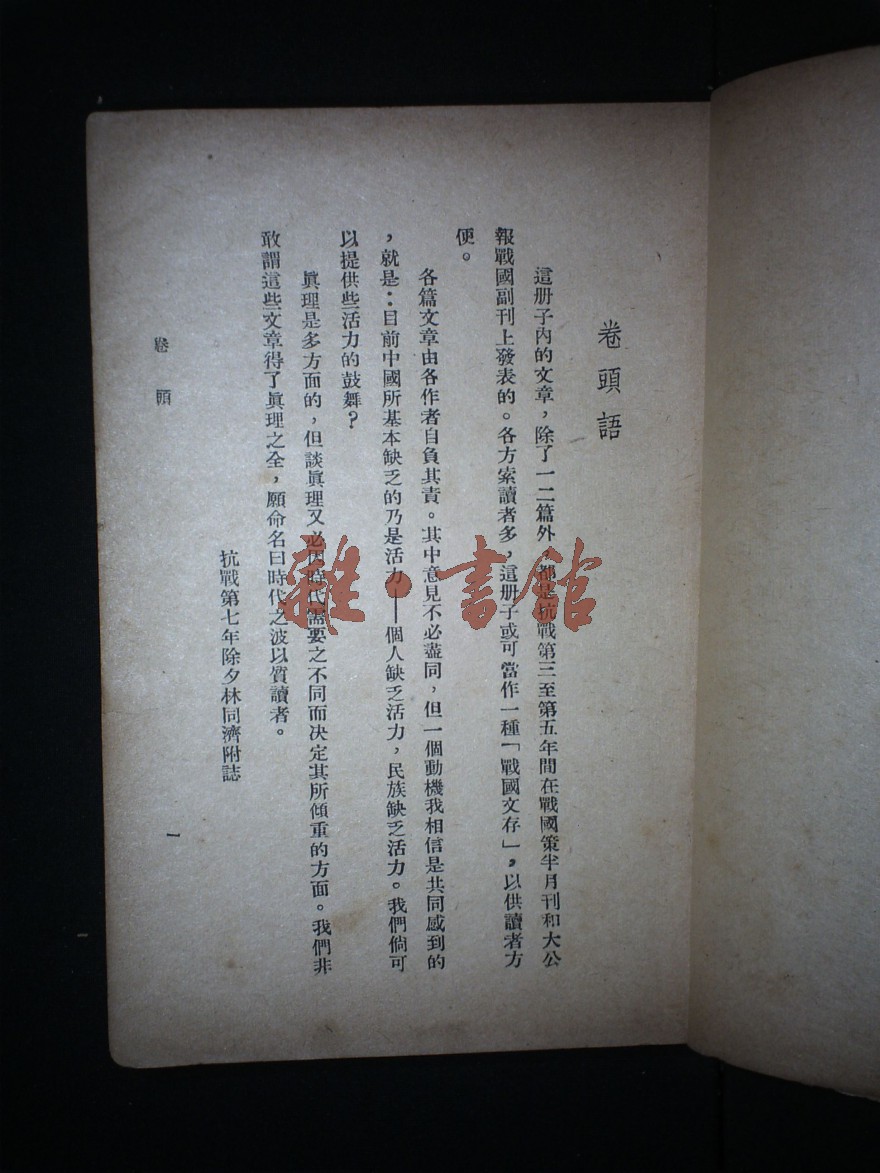 卷頭語
這册子內的文章，除了一二篇外，都是抗戰第三至第五年間在戰國策半月刊和大公
報戰國副刊上發表的。各方索讀者多，這册子或可當作一種「戰國文存」，以供讀者方
便。
各篇文章由各作者自負其責。其中意見不必盡同，但一個動機我相信是共同感到的
，就是：目前中國所基本缺乏的乃是活力——個人缺乏活力，民族缺乏活力。我們倘可
以提供些活力的鼓舞？
眞理是多方面的，但談眞理又必因時代需要之不同而決定其所傾重的方面。我們非
敢謂這些文章得了眞理之全，願命名曰時代之波以質讀者。
抗戰第七年除夕林同濟附誌
卷頭
一
雜·書館